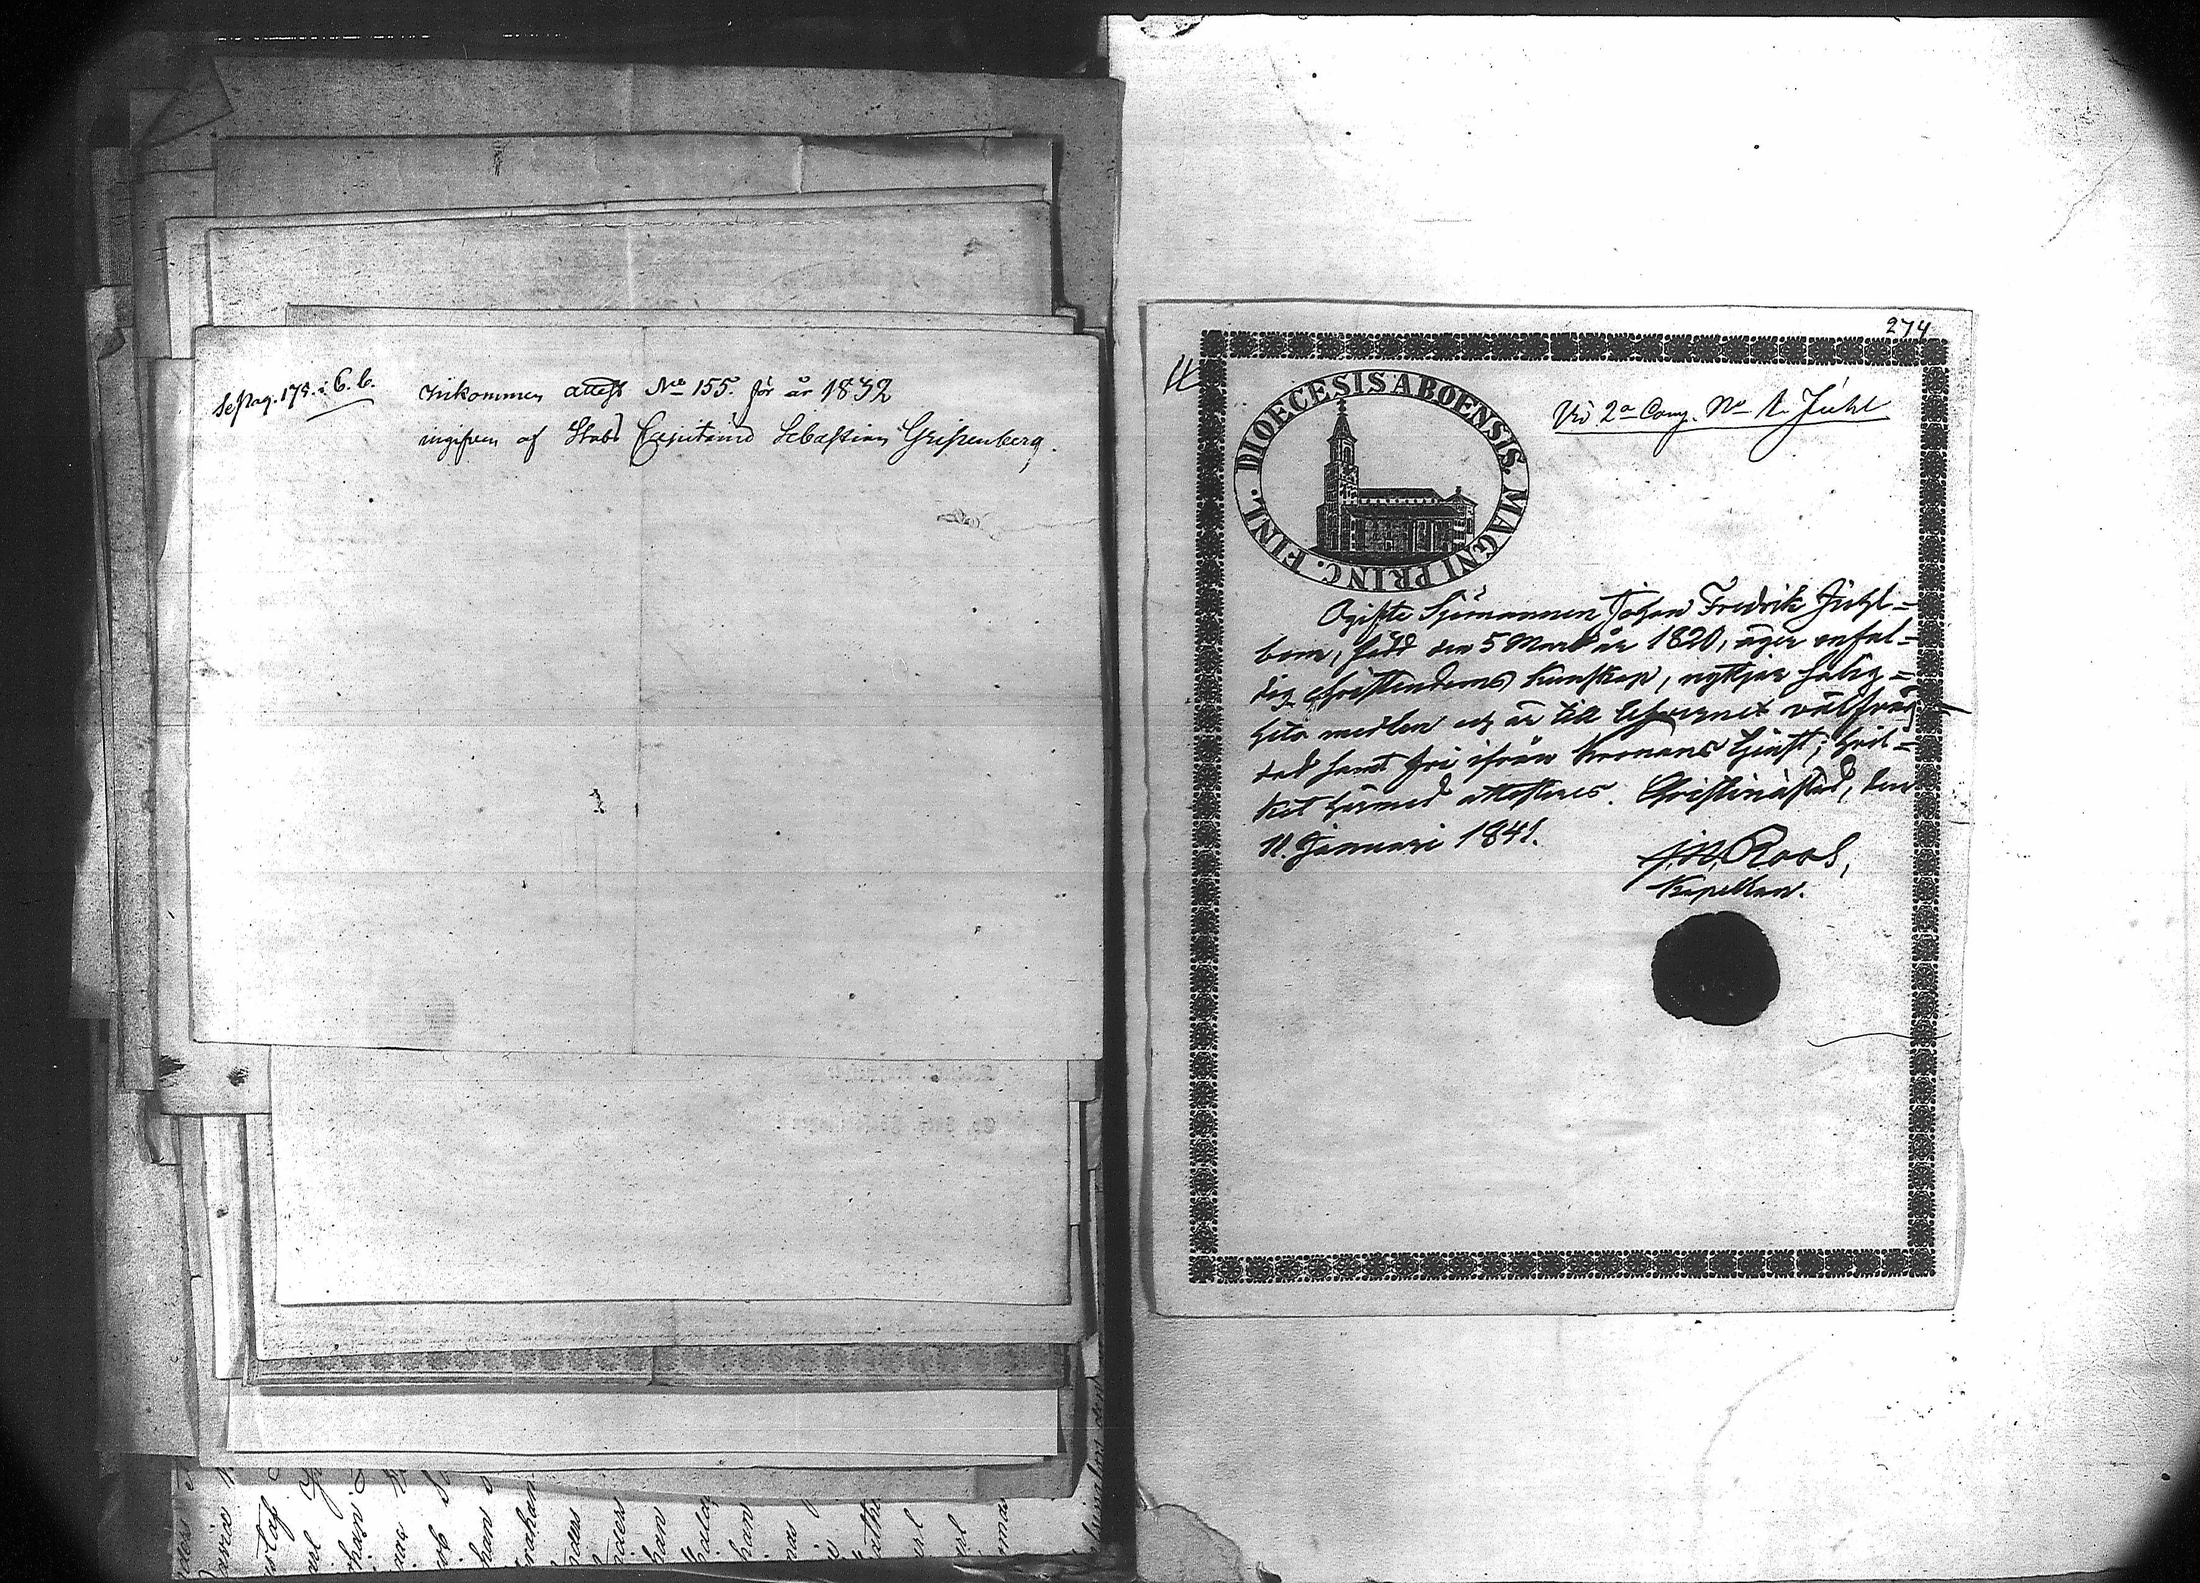 Se Pag. 175. i C. b.
Inkommen attest No 155. för år 1832
ingifven af Stabs Capitaine Sebastian Gripenberg.
274
11
DIOECESIS ABOENSIS MAGNI PRINC. FINL.
Vid 2a Comp. No 1. Juhl
Ogifte Sjömannen Johan Fredrik Juhl=
bom, född den 5 Mars år 1820, äger enfal=
dig christendoms kunskap, nyttjar salig=
hets medlen och är till lefvernet välfräj
dad samt fri ifrån Kronans tjenst; hvil=
ket härmed attesteras. Christinæstad, den
11. Januari 1841.
Roos,
Kapellan.